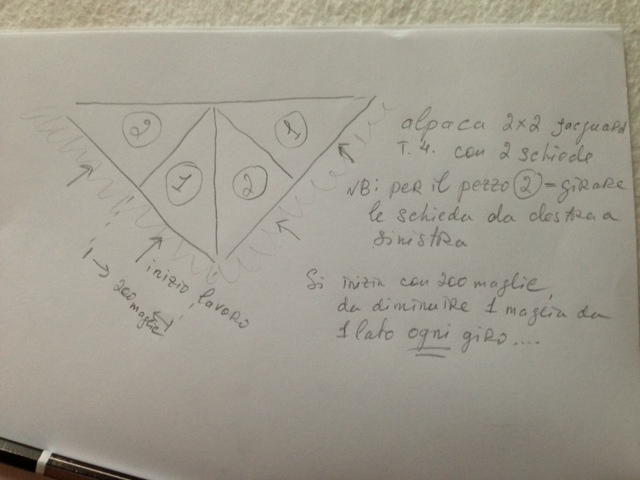 2
1
1
2
alpaca 2x2 jacquard
T. 4. con 2 schede
NB: per il pezzo 2 = girare
le scheda da destra a
sinistra
inizio lavoro
1 → 200
maglie
Si inizia con 200 maglie,
da diminuire 1 maglia da
1 lato ogni giro....